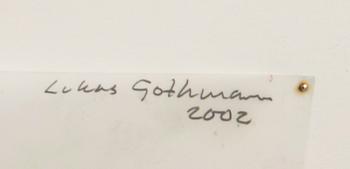 Lukas Gothmann
2002